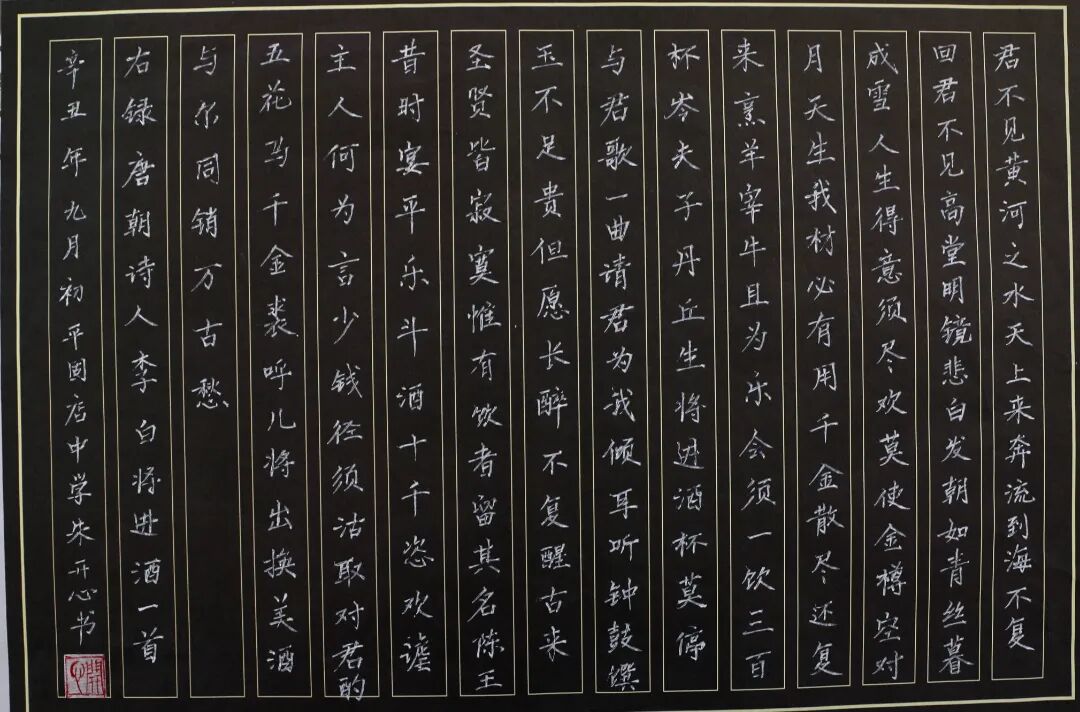 君不见黄河之水天上来奔流到海不复
回君不见高堂明镜悲白发朝如青丝暮
成雪人生得意须尽欢莫使金樽空对
月天生我材必有用千金散尽还复
来烹羊宰牛且为乐会须一饮三百
杯岑夫子丹丘生将进酒杯莫停
与君歌一曲请君为我倾耳听钟鼓馔
玉不足贵但愿长醉不复醒古来
圣贤皆寂寞惟有饮者留其名陈王
昔时宴平乐斗酒十千恣欢谑
主人何为言少钱径须沽取对君酌
五花马千金裘呼儿将出换美酒
与尔同销万古愁
右录唐朝诗人李白将进酒一首
辛丑年九月初平固店中学朱开心书